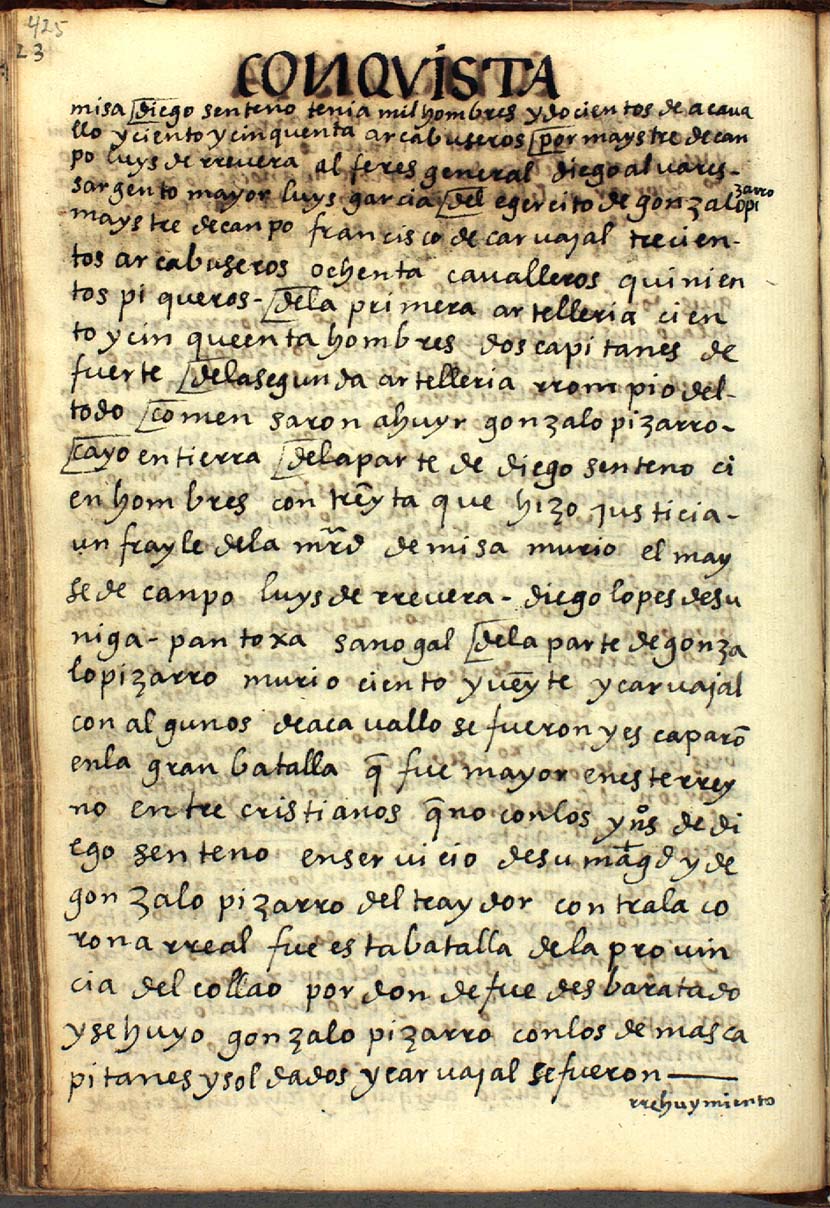 425
23
CONQVISTA
misa diego senteno tenia mil hombres y docientos de a caua
llo y ciento y cinquenta arcabuseros por maystre de can
po luys de rreuera alferes general diego aluares-
sargento mayor luys garcia del egercito de gonzalo pi
zarro
maystre de canpo francisco de caruajal trecien-
tos arcabuseros ochenta caualleros quinien
tos piqueros- de la primera artelleria cien
to y cinqueenta hombres dos capitanes de
fuerte de la segunda artelleria rrompio del-
todo comensaron a huyr gonzalo pizarro-
cayo en tierra de la parte de diego senteno ci
en hombres con treyta que hizo justicia-
un frayle de la mrd de misa murio el may
se de canpo luys de rreuera- diego lopes desu
niga- pantoxa sanogal de la parte de gonza
lo pizarro murio ciento y ueyte y caruajal
con algunos de a cauallo se fueron y escaparõ
en la gran batalla q̃ fue mayor en este rrey
no entre cristianos q̃ no con los yns de di
ego senteno en seruicio de su magd y de
gonzalo pizarro del traydor contra la co
rona rreal fue esta batalla de la prouin
cia del collao por donde fue desbaratado
y se huyo gonzalo pizarro con los demas ca
pitanes y soldados y caruajal se fueron
rrehuymiento